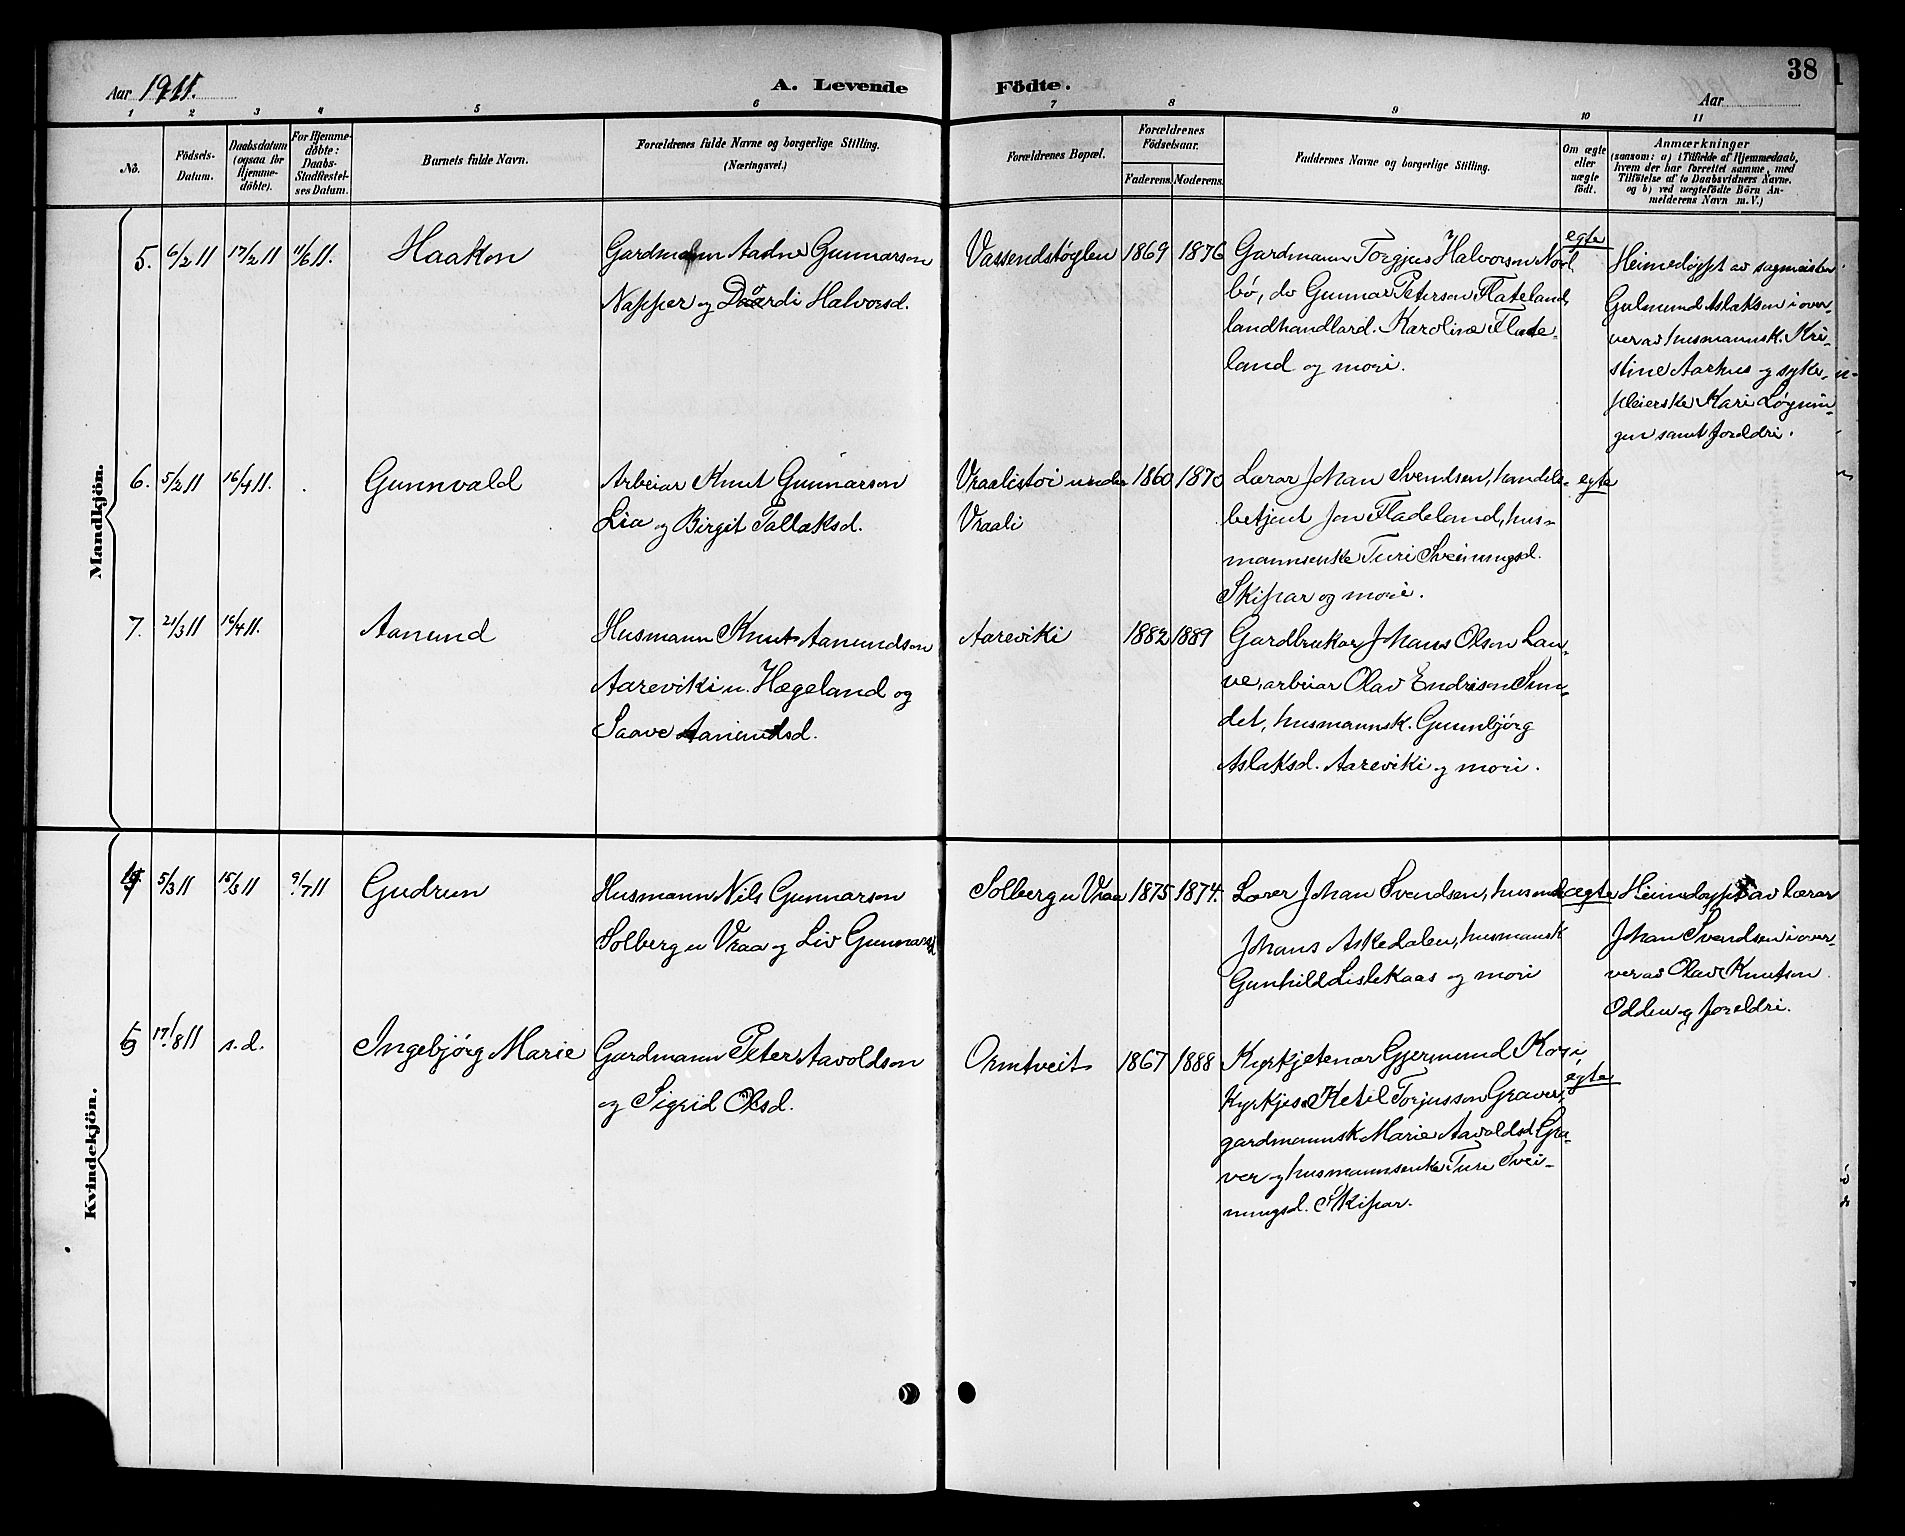 38
Aar 1911.
A. Levende Födte.
Aar
1 2 3 4 5 6 7 8 9 10 11
No.
Födsels-Datum.
Daabsdatum (ogsaa for Hjemmedöbte).
For Hjemmedöbte: Daabs-Stadfestelses Datum.
Barnets fulde Navn.
Forældrenes fulde Navne og borgerlige Stilling. (Næringsvei.)
Forældrenes Bopæl.
Forældrenes Födselsaar.
Faderens. Moderens.
Faddernes Navne og borgerlige Stilling.
Om ægte eller uægte födt.
Anmærkninger
(saasom: a) i Tilfælde af Hjemmedaab, hvem der har forrettet samme, med Tilföielse af to Daabsvidners Navne. og b) ved uægtefödte Börn Anmelderens Navn m. V.)
Mandkjön.
5. 6/2 11 17/2 11 11/6 11. Haakon
Gardmann Aadne Gunnarson
Napper og Daardi Halvorsd.
Vassendstøylen 1869 1876
Gardmann Torgjus Halvorson Nord
bó, do Gunnar Peterson Flateland,
landhandlard. Karoline Flate-
land og mori.
egte
Heimedøypt av sagmeister
Gulmund Aslaksen i over-
ver av husmannsk. Kri-
stine Aarhus og syke-
pleierske Kari Løgnin-
gen samt foreldri.
6. 5/2 11 16/4 11. Gunnvald
Arbeiar Knut Gunnarson
Lia og Birgit Tallaksd.
Vraalistøi under
Vraali
1860 1870
Lærar Johan Svendsen, handels-
betjent Jon Fladeland, hus-
mannsenke Turi Sveinungsd.
Skipar og mori.
egte
7. 21/3 11 16/4 11. Aanund
Husmann Knut Aanundson
Aareviki u. Hægeland og
Saave Aanundsd.
Aareviki 1882 1889
Gardbrukar Johans Olson Lau-
ve, arbeiar Olav Endrison Sun-
det, husmannsk. Gunnbjørg
Aslaksd. Aareviki og mori.
Kvindekjön.
5/3 11 15/3 11 9/7 11 Gudrun
Husmann Nils Gunnarson
Solberg u Vraa og Liv Gunnarsd
Solberg u Vraa 1875 1874.
Lærer Johan Svendsen, husmand
Johans Askedalen, husmansk
Gunhild Listekaas og mori
ægte
Heimedøypt av lærar
Johan Svendsen i over-
ver av Olav Knutson
Odden og foreldri.
17/8 11 s.d. Ingebjörg Marie
Gardmann Peter Aavoldson
og Sigrid Olsd.
Ormtveit 1867 1888
Kyrkjetenar Gjermund Kosi,
Kyrkjes. Ketil Torjusson Graver,
gardmannsk Marie Aavoldsd Gra-
ver og husmannsenke Turi Svei-
nungsd. Skipar.
egte